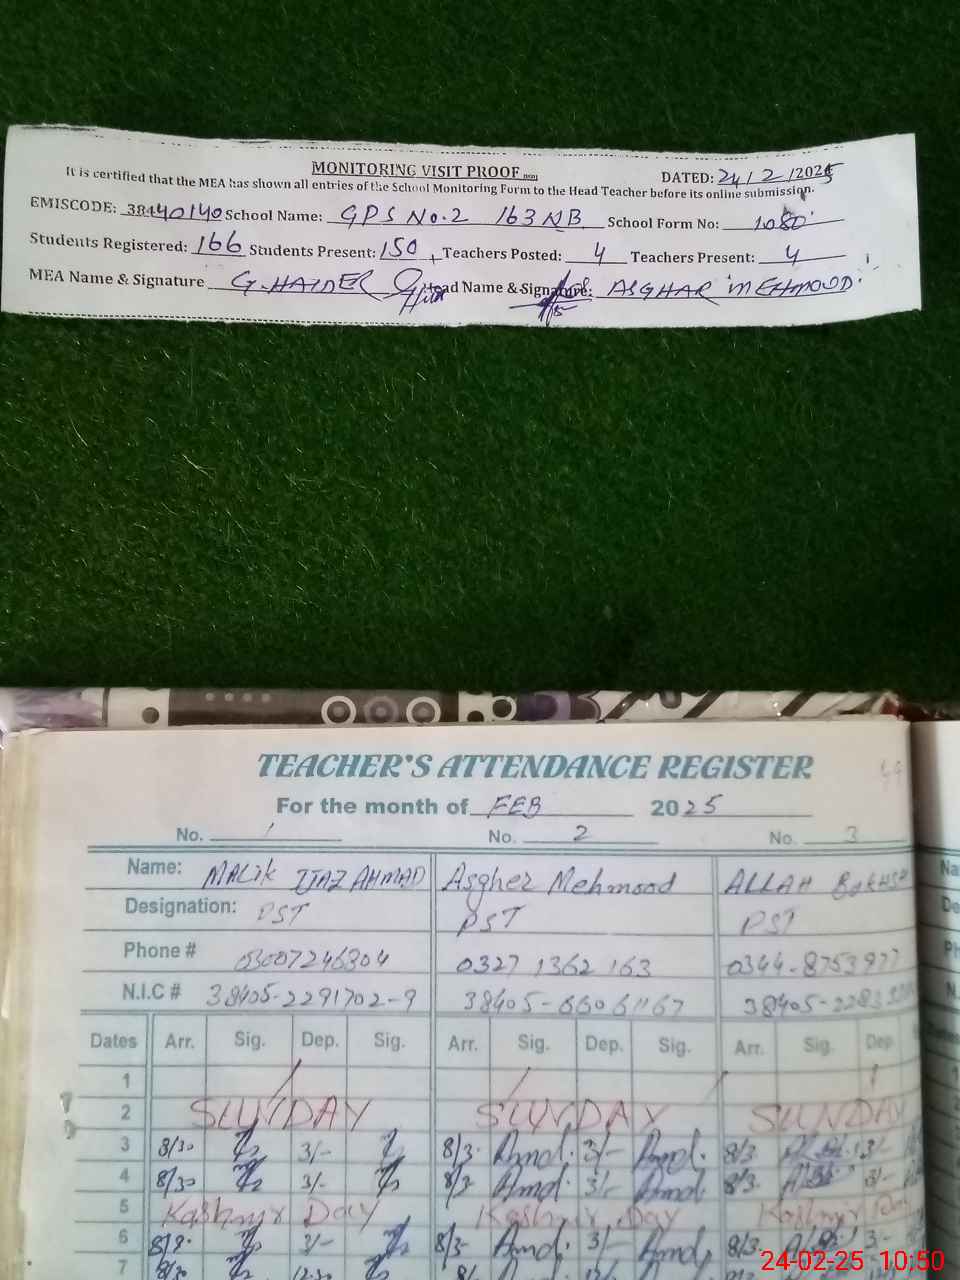 MONITORING VISIT PROOF
DATED: 24/2/2025
It is certified that the MEA has shown all entries of the School Monitoring Form to the Head Teacher before its online submission.
EMISCODE: 38440140 School Name: GPS No.2 163 NB School Form No: 1080
Students Registered: 166 Students Present: 150 Teachers Posted: 4 Teachers Present: 4
MEA Name & Signature G.HAIDER Head Name & Signature: ASGHAR MEHMOOD
TEACHER'S ATTENDANCE REGISTER
For the month of FEB 2025
No. 1 No. 2 No. 3
Name: MALik IJAZ AHMAD Asgher Mehmood ALLAH
Designation: PST PST PST
Phone # 03007246804 0327 1362 163 0344-8753977
N.I.C # 38405-2291702-9 38405-66061167 38405-
Dates Arr. Sig. Dep. Sig. Arr. Sig. Dep. Sig. Arr. Sig. Dep.
1
2 SUNDAY SUNDAY SUNDAY
3 8/30 3/- 8/3 Amd. 3/- Amd. 8/3 3/-
4 8/30 3/- 8/3 Amd. 3/- Amd. 8/3 3/-
5 Kashmir Day Kashmir Day Kashmir Day
6 8/3 3/- 8/3 Amd. 3/- Amd. 8/3 3-
7 8/30 12:30
24-02-25 10:50